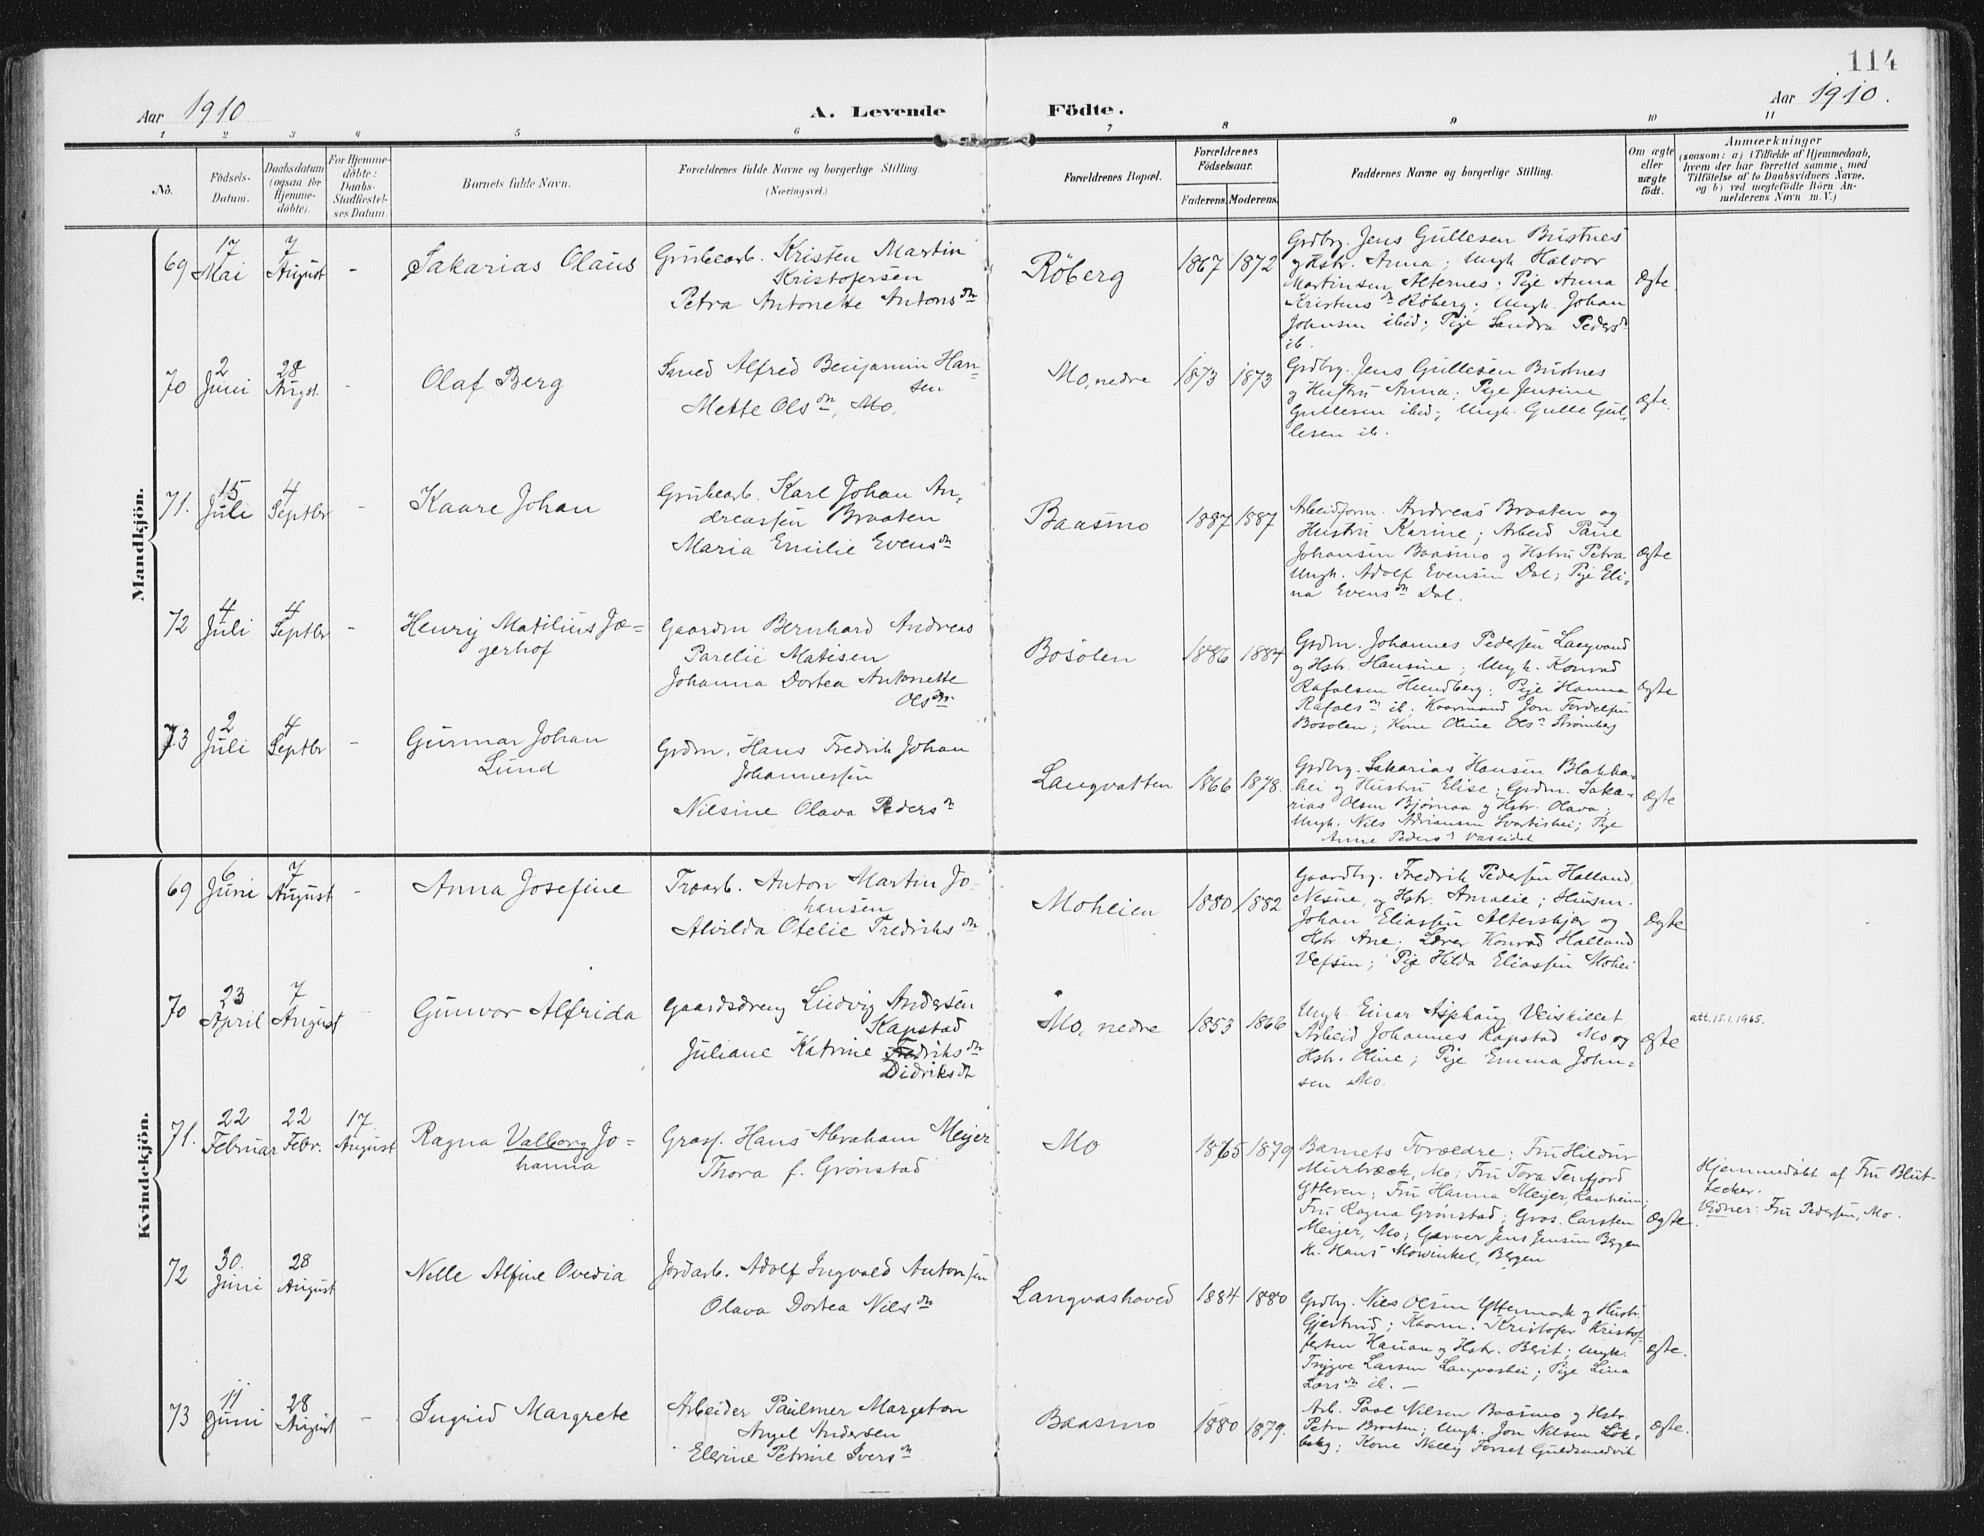 114
Aar 1910
A. Levende
Födte.
Aar 1910.
1 2 3 4 5 6 7 8 9 10 11
No.
Födsels-
Datum.
Daabsdatum
(ogsaa for
Hjemme-
döbte).
For Hjemme-
döbte:
Daabs-
Stadfæstel-
ses Datum.
Barnets fulde Navn.
Forældrenes fulde Navne og borgerlige Stilling.
(Næringsvei.)
Forældrenes Bopæl.
Forældrenes
Födselsaar.
Faderens.
Moderens.
Faddernes Navne og borgerlige Stilling.
Om ægte
eller
uægte
födt.
Anmærkninger
(saasom: a) i Tilfælde af Hjemmedaab,
hvem der har forrettet samme, med
Tilföielse af to Daabsvidners Navne,
og b) ved uægtefödte Börn An-
melderens Navn m. V.)
Mandkjön.
69
17
Mai
7
August
-
Sakarias Olaus
Grubearb. Kristen Martin
Kristofersen
Petra Antonette Antonsdtr
Röberg
1867
1872
Grdbrg. Jens Gullesen Bustnes
og Hstr. Anna; Ungk. Halvor
Martinsen Alternes; Pige Anna
Kristensdtr Röberg; Ungk. Johan
Johnsen ibid; Pige Sandra Pedersdtr
ib.
Ægte
70
2
Juni
28
Augst.
-
Olaf Berg
Smed Alfred Benjamin Han-
sen
Mette Olsdtr, Mo.
Mo, nedre
1873
1873
Grdbrg. Jens Gullesen Bustnes
og Hustru Anna; Pige Jensine
Gullesen ibid; Ungk. Gulle Gul-
lesen ib.
ægte.
71.
15
Juli
4
Septbr
-
Kaare Johan
Grubearb. Karl Johan An-
dreassen Braaten
Maria Emilie Evensdtr
Baasmo
1887
1887
Arbeidform. Andreas Braaten og
Hustru Karine; Arbeid Paul
Johansen Baasmo og Hstru Petra
Ungk. Adolf Evensen Dal; Pige Eli-
na Evensdtr Dal.
ægte
72
4
Juli
4
Septbr
-
Henrij Matilius Jæ-
gerhof
Gaardm Bernhard Andreas
Parelii Matisen
Johanna Dortea Antonette
Olsdtr
Bosolen
1886
1884
Grdm. Johannes Pedersen Langvand
og Hstr. Hansine; Ungk. Konrad
Rafalsen Hundberg; Pige Hanna
Rafalsdtr ib. Kaarmand Jon Fordelsen
Bosolen; Kone Oline Olsdtr Strömberg
ægte
73
2
Juli
4
Septbr
-
Gunnar Johan
Lund
Grdm. Hans Fredrik Johan
Johannessen
Nilsine Olava Pedersdtr
Langvatten
1866
1878.
Grdbrg. Sakarias Hansen Blakka-
hei og Hustru Elise; Grdm. Saka-
rias Olsen Bjørnaa og Hstr. Olava;
Ungk. Nils Adriansen Svartishei; Pige
Anne Pedersdtr Vaseidet
ægte
Kvindekjön.
69
6
Juni
7
August
-
Anna Josefine
Træarb. Anton Martin Jo-
hansen
Alvilda Otelie Fredriksdtr
Moheien
1880
1882
Gaardbrg. Fredrik Pedersen Halland,
Nesne, og Hstr. Amalie; Husm.
Johan Eliassen Alterskjær og
Hstr. Ane; Lærer Konrad Halland
Vefsen; Pige Hilda Eliassen Mohei
Ægte
70
23
April
7
August
-
Gunvor Alfrida
Gaardsdreng Ludvig Andersen
Rapstad
Juliane Katrine Fredriksdtr
Didriksdt
Mo, nedre
1853
1866
Ungk. Einar Asphaug Veiskillet
Arbeid Johannes Rapstad Mo og
Hstr. Oline; Pige Emma John-
sen Mo.
ægte
att. 15.1.1965.
71.
22
Februar
22
Febr.
17.
August
Ragna Valborg Jo-
hanna
Gross. Hans Abraham Meijer
Thora f. Grönstad
Mo
1865
1879
Barnets Forældre; Fru Hildur
Murbræck, Mo; Fru Tora Tenfjord
Ytteren; Fru Hanna Meijer, Ranheim;
Fru Ragna Grönstad; Gros. Carsten
Meijer, Mo; Garver Jens Jensen Bergen
Hr. Hans Mowinkel, Bergen
ægte
Hjemmedöbt af Fru Blüt-
tecker.
Vidner: Fru Pedersen, Mo.
72
30.
Juni
28
August
Nelle Alfine Ovedia
Jordarb. Adolf Ingvald Antonsen
Olava Dortea Nilsdtr
Langvashoved
1884
1880
Grdbrg. Nils Olsen Yttermark og Hustr.
Gjertrud; Kaarm. Kristofer Kristof-
fersen Hauan og Hstr. Berit; Ungk.
Trygve Larsen Langvashei; Pige Lina
Larsdtr ib. -
ægte.
73
11
Juni
28
August
-
Ingrid Margrete
Arbeider Paulmer Margeton
Angel Andersen
Elevine Petrine Iversdtr
Baasmo
1880
1879.
Arb. Paal Nilsen Baasmo og Hstr.
Petra Braaten; Ungk. Jon Nilsen Løk-
; Kone Nelly Forset Guldsmedvik
ægte.